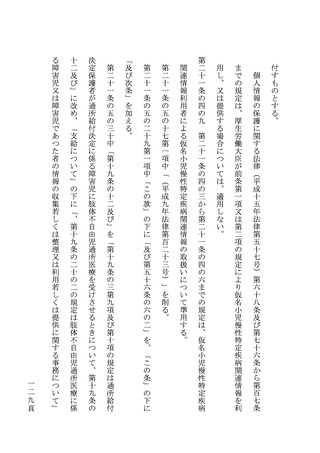 付すものとする。
個人情報の保護に関する法律（平成十五年法律第五十七号）第六十八条及び第七十六条から第百七条
までの規定は、厚生労働大臣が前条第一項又は第二項の規定により仮名小児慢性特定疾病関連情報を利
用し、又は提供する場合については、適用しない。
第二十一条の四の九　第二十一条の四の三から第二十一条の四の六までの規定は、仮名小児慢性特定疾病
関連情報利用者による仮名小児慢性特定疾病関連情報の取扱いについて準用する。
第二十一条の五の十七第一項中「（平成九年法律第百二十三号）」を削る。
第二十一条の五の二十九第一項中「この款」の下に「及び第五十六条の六の二」を、「この条」の下に
「及び次条」を加える。
第二十一条の五の三十中「第十九条の十二及び」を「第十九条の三第九項及び第十項の規定は通所給付
決定保護者が通所給付決定に係る障害児に肢体不自由児通所医療を受けさせるときについて、第十九条の
十二及び」に改め、「支給について」の下に「、第十九条の二十の二の規定は肢体不自由児通所医療に係
る障害児又は障害児であつた者の情報の収集若しくは整理又は利用若しくは提供に関する事務について」
一二九頁